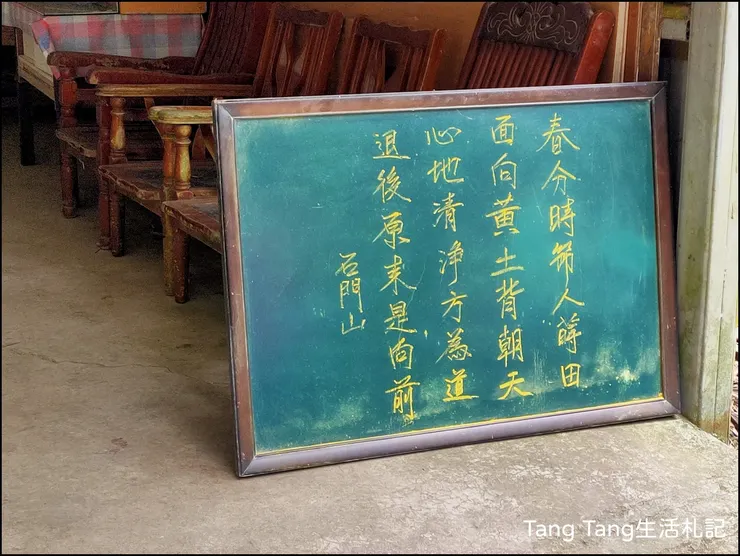 春分時節人蒔田
面向黃土背朝天
心地清淨方為道
退後原来是向前。
石門山
Tang Tang生活札記